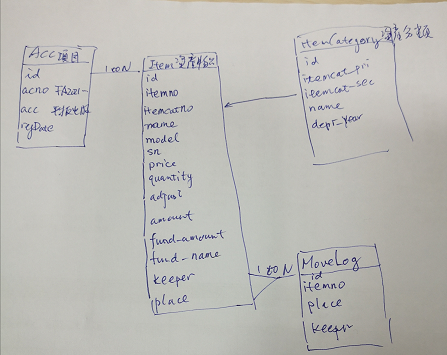 Acc 項目
id
acno
acc
rgDate
1 to N
Item
id
itemno
itemcatno
name
model
sn
price
quantity
adjust
amount
fund-amount
fund-name
keeper
place
ItemCategory
id
itemcat-pri
itemcat-sec
name
depr-year
1 to N
MoveLog
id
itemno
place
keeper